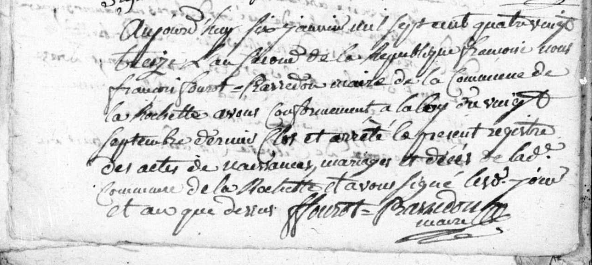 Aujourd huy six janvier mil sept cent quatre vingt
treize l an second de la Republique francoise nous
francois Fourot = Barredon maire de la Commune de
la Rochette avons Conformement a la loy du vingt
septembre dernier Clos et arrêté le present registre
des actes de naissances, mariages et décés de lad.e
Commune de la Rochette et avons signé lesd. jour
et an que dessus ffourot = Barredon
maire